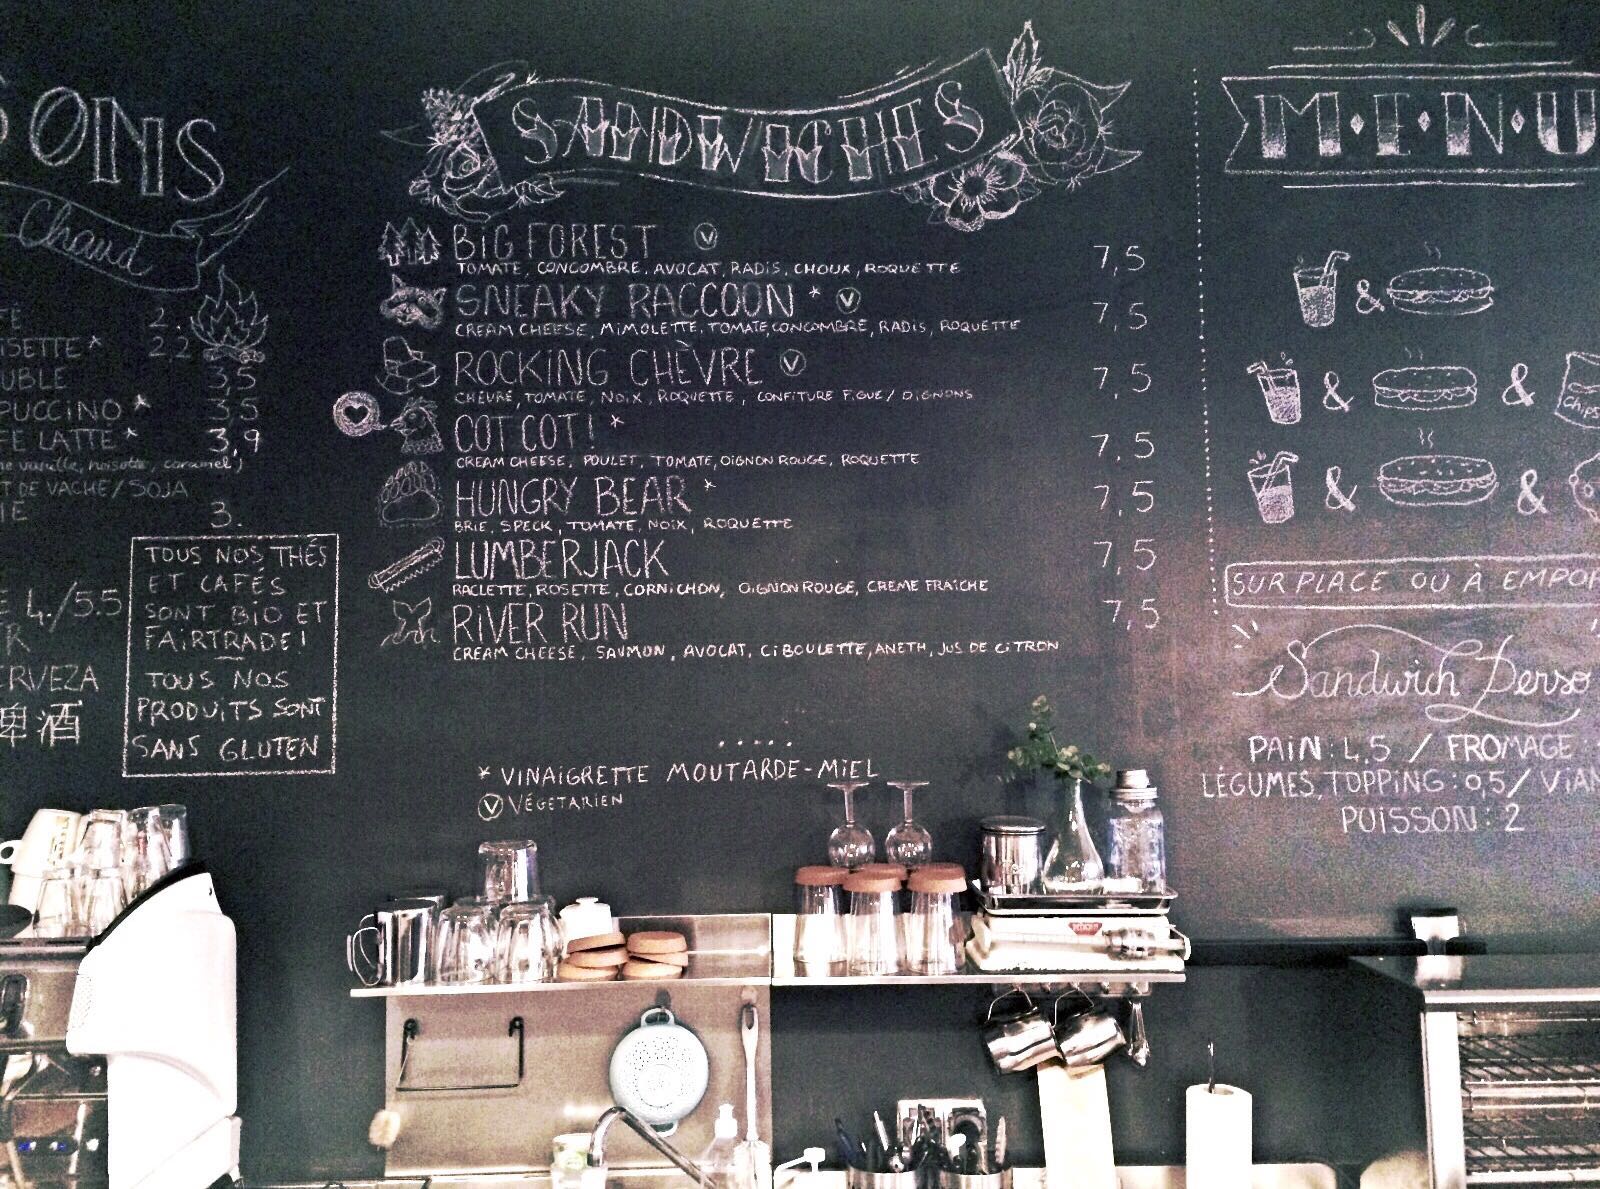 ONS
Chaud
2.
ISETTE* 2,2
UBLE 3,5
PUCCINO* 3.5
FE LATTE* 3,9
vanille, noisette, caramel)
T DE VACHE/SOJA
3.
4./5.5
ERVEZA
啤酒
TOUS NOS THÉS
ET CAFÉS
SONT BIO ET
FAIRTRADE!
TOUS NOS
PRODUITS SONT
SANS GLUTEN
SANDWICHES
BIG FOREST V 7,5
TOMATE, CONCOMBRE, AVOCAT, RADIS, CHOUX, ROQUETTE
SNEAKY RACCOON * V 7,5
CREAM CHEESE, MIMOLETTE, TOMATE, CONCOMBRE, RADIS, ROQUETTE
ROCKING CHÈVRE V 7,5
CHEVRE, TOMATE, NOIX, ROQUETTE, CONFITURE FIGUE/OIGNONS
COT COT! * 7,5
CREAM CHEESE, POULET, TOMATE, OIGNON ROUGE, ROQUETTE
HUNGRY BEAR * 7,5
BRIE, SPECK, TOMATE, NOIX, ROQUETTE
LUMBERJACK 7,5
RACLETTE, ROSETTE, CORNICHON, OIGNON ROUGE, CREME FRAICHE
RIVER RUN 7,5
CREAM CHEESE, SAUMON, AVOCAT, CIBOULETTE, ANETH, JUS DE CITRON
.....
* VINAIGRETTE MOUTARDE-MIEL
V VÉGETARIEN
M·E·N·U
&
& & Chips
& &
SUR PLACE OU À EMPOR
Sandwich Perso
PAIN: 4,5 / FROMAGE :
LÉGUMES, TOPPING: 0,5/ VIAN
POISSON: 2